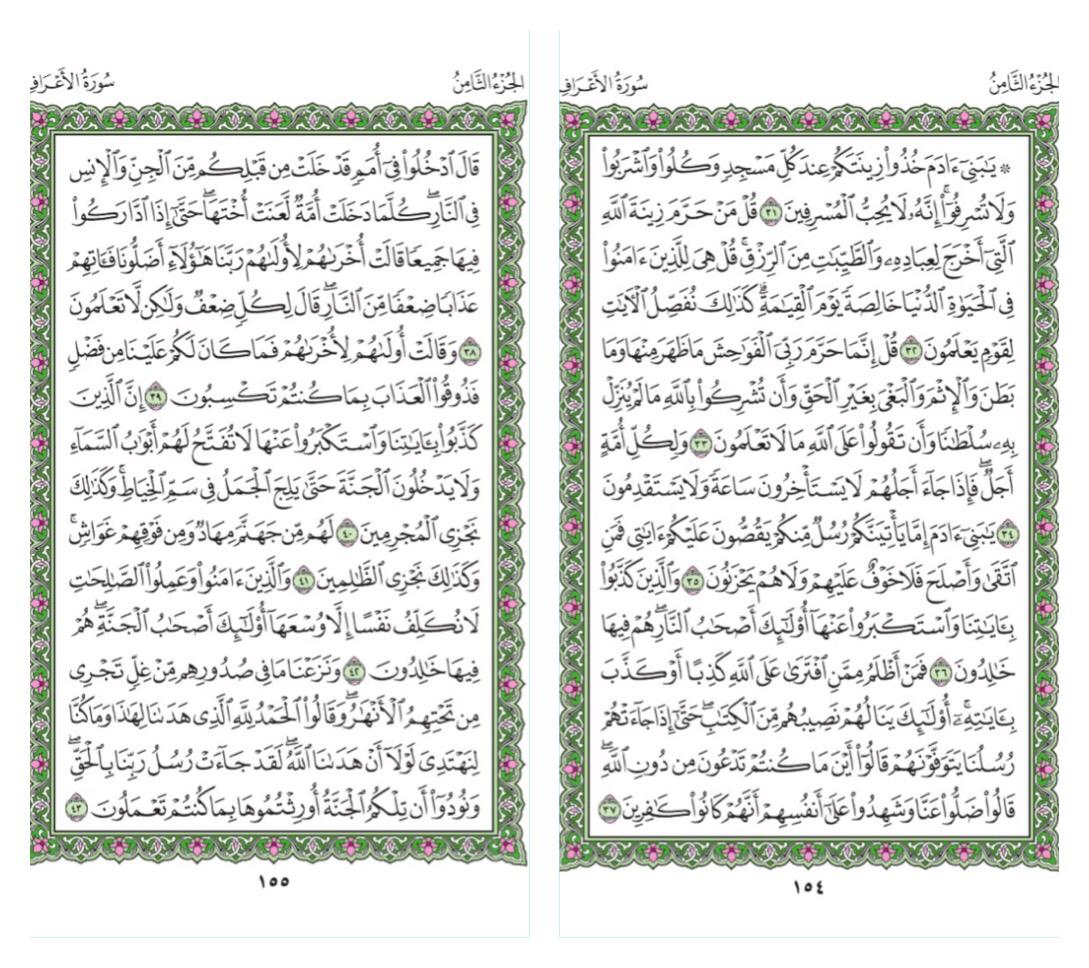 الجُزْءُ الثَّامِنُ
سُورَةُ الأَعْرَافِ
۞ يَٰبَنِىٓ ءَادَمَ خُذُوا۟ زِينَتَكُمْ عِندَ كُلِّ مَسْجِدٍ وَكُلُوا۟ وَٱشْرَبُوا۟
وَلَا تُسْرِفُوٓا۟ ۚ إِنَّهُۥ لَا يُحِبُّ ٱلْمُسْرِفِينَ ٣١ قُلْ مَنْ حَرَّمَ زِينَةَ ٱللَّهِ
ٱلَّتِىٓ أَخْرَجَ لِعِبَادِهِۦ وَٱلطَّيِّبَٰتِ مِنَ ٱلرِّزْقِ ۚ قُلْ هِىَ لِلَّذِينَ ءَامَنُوا۟
فِى ٱلْحَيَوٰةِ ٱلدُّنْيَا خَالِصَةً يَوْمَ ٱلْقِيَٰمَةِ ۗ كَذَٰلِكَ نُفَصِّلُ ٱلْءَايَٰتِ
لِقَوْمٍ يَعْلَمُونَ ٣٢ قُلْ إِنَّمَا حَرَّمَ رَبِّىَ ٱلْفَوَٰحِشَ مَا ظَهَرَ مِنْهَا وَمَا
بَطَنَ وَٱلْإِثْمَ وَٱلْبَغْىَ بِغَيْرِ ٱلْحَقِّ وَأَن تُشْرِكُوا۟ بِٱللَّهِ مَا لَمْ يُنَزِّلْ
بِهِۦ سُلْطَٰنًا وَأَن تَقُولُوا۟ عَلَى ٱللَّهِ مَا لَا تَعْلَمُونَ ٣٣ وَلِكُلِّ أُمَّةٍ
أَجَلٌ ۖ فَإِذَا جَآءَ أَجَلُهُمْ لَا يَسْتَأْخِرُونَ سَاعَةً وَلَا يَسْتَقْدِمُونَ
٣٤ يَٰبَنِىٓ ءَادَمَ إِمَّا يَأْتِيَنَّكُمْ رُسُلٌ مِّنكُمْ يَقُصُّونَ عَلَيْكُمْ ءَايَٰتِى فَمَنِ
ٱتَّقَىٰ وَأَصْلَحَ فَلَا خَوْفٌ عَلَيْهِمْ وَلَا هُمْ يَحْزَنُونَ ٣٥ وَٱلَّذِينَ كَذَّبُوا۟
بِـَٔايَٰتِنَا وَٱسْتَكْبَرُوا۟ عَنْهَآ أُو۟لَٰٓئِكَ أَصْحَٰبُ ٱلنَّارِ ۖ هُمْ فِيهَا
خَٰلِدُونَ ٣٦ فَمَنْ أَظْلَمُ مِمَّنِ ٱفْتَرَىٰ عَلَى ٱللَّهِ كَذِبًا أَوْ كَذَّبَ
بِـَٔايَٰتِهِۦٓ ۚ أُو۟لَٰٓئِكَ يَنَالُهُمْ نَصِيبُهُم مِّنَ ٱلْكِتَٰبِ ۖ حَتَّىٰٓ إِذَا جَآءَتْهُمْ
رُسُلُنَا يَتَوَفَّوْنَهُمْ قَالُوٓا۟ أَيْنَ مَا كُنتُمْ تَدْعُونَ مِن دُونِ ٱللَّهِ ۖ
قَالُوا۟ ضَلُّوا۟ عَنَّا وَشَهِدُوا۟ عَلَىٰٓ أَنفُسِهِمْ أَنَّهُمْ كَانُوا۟ كَٰفِرِينَ ٣٧
١٥٤
الجُزْءُ الثَّامِنُ
سُورَةُ الأَعْرَافِ
قَالَ ٱدْخُلُوا۟ فِىٓ أُمَمٍ قَدْ خَلَتْ مِن قَبْلِكُم مِّنَ ٱلْجِنِّ وَٱلْإِنسِ
فِى ٱلنَّارِ ۖ كُلَّمَا دَخَلَتْ أُمَّةٌ لَّعَنَتْ أُخْتَهَا ۖ حَتَّىٰٓ إِذَا ٱدَّارَكُوا۟
فِيهَا جَمِيعًا قَالَتْ أُخْرَىٰهُمْ لِأُولَىٰهُمْ رَبَّنَا هَٰٓؤُلَآءِ أَضَلُّونَا فَـَٔاتِهِمْ
عَذَابًا ضِعْفًا مِّنَ ٱلنَّارِ ۖ قَالَ لِكُلٍّ ضِعْفٌ وَلَٰكِن لَّا تَعْلَمُونَ
٣٨ وَقَالَتْ أُولَىٰهُمْ لِأُخْرَىٰهُمْ فَمَا كَانَ لَكُمْ عَلَيْنَا مِن فَضْلٍ
فَذُوقُوا۟ ٱلْعَذَابَ بِمَا كُنتُمْ تَكْسِبُونَ ٣٩ إِنَّ ٱلَّذِينَ
كَذَّبُوا۟ بِـَٔايَٰتِنَا وَٱسْتَكْبَرُوا۟ عَنْهَا لَا تُفَتَّحُ لَهُمْ أَبْوَٰبُ ٱلسَّمَآءِ
وَلَا يَدْخُلُونَ ٱلْجَنَّةَ حَتَّىٰ يَلِجَ ٱلْجَمَلُ فِى سَمِّ ٱلْخِيَاطِ ۚ وَكَذَٰلِكَ
نَجْزِى ٱلْمُجْرِمِينَ ٤٠ لَهُم مِّن جَهَنَّمَ مِهَادٌ وَمِن فَوْقِهِمْ غَوَاشٍ ۚ
وَكَذَٰلِكَ نَجْزِى ٱلظَّٰلِمِينَ ٤١ وَٱلَّذِينَ ءَامَنُوا۟ وَعَمِلُوا۟ ٱلصَّٰلِحَٰتِ
لَا نُكَلِّفُ نَفْسًا إِلَّا وُسْعَهَآ أُو۟لَٰٓئِكَ أَصْحَٰبُ ٱلْجَنَّةِ ۖ هُمْ
فِيهَا خَٰلِدُونَ ٤٢ وَنَزَعْنَا مَا فِى صُدُورِهِم مِّنْ غِلٍّ تَجْرِى
مِن تَحْتِهِمُ ٱلْأَنْهَٰرُ ۖ وَقَالُوا۟ ٱلْحَمْدُ لِلَّهِ ٱلَّذِى هَدَىٰنَا لِهَٰذَا وَمَا كُنَّا
لِنَهْتَدِىَ لَوْلَآ أَنْ هَدَىٰنَا ٱللَّهُ ۖ لَقَدْ جَآءَتْ رُسُلُ رَبِّنَا بِٱلْحَقِّ ۖ
وَنُودُوٓا۟ أَن تِلْكُمُ ٱلْجَنَّةُ أُورِثْتُمُوهَا بِمَا كُنتُمْ تَعْمَلُونَ ٤٣
١٥٥